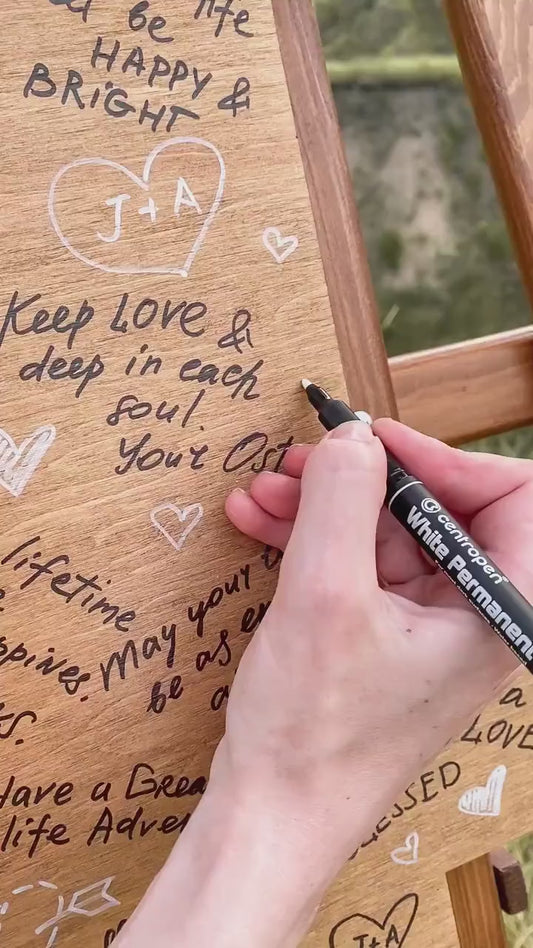 be life
HAPPY &
BRIGHT
J + A
Keep Love &
deep in each
soul.
Your Ost
lifetime
May your
be as
Have a Grea
life Adve
a
LOVE
J+A
centropen
White Permanent